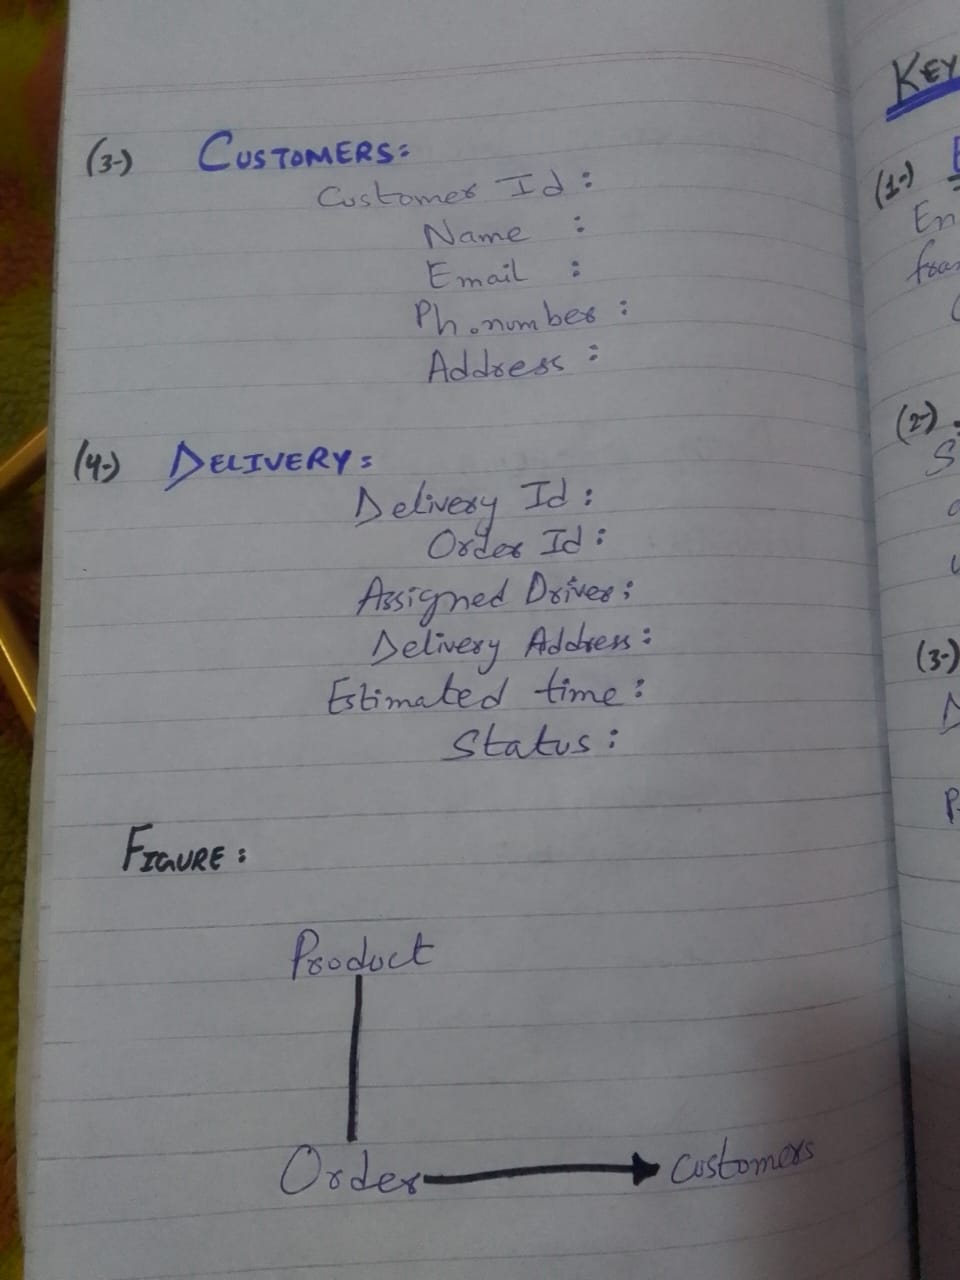 (3-) CUSTOMERS:
Customer Id :
Name :
Email :
Ph.number :
Address :
(4-) DELIVERY:
Delivery Id :
Order Id :
Assigned Driver :
Delivery Address :
Estimated time :
Status :
FIGURE :
Product
Order
Customers
KEY
(1-)
(2-)
(3-)